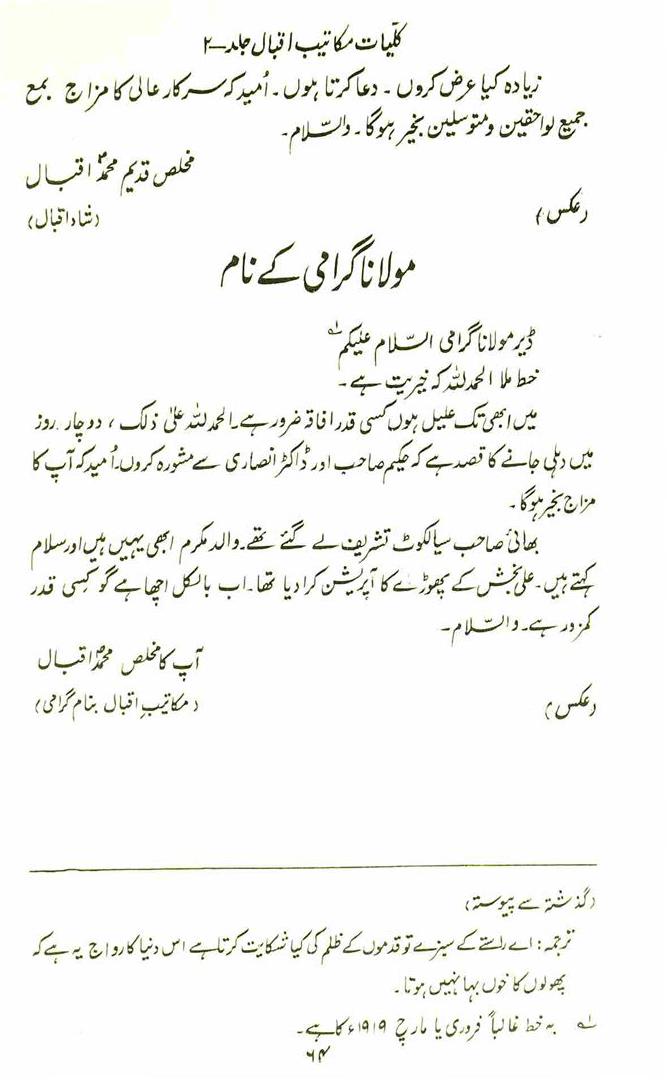 کلّیات مکاتیب اقبال جلد ۔ ۲
زیادہ کیا عرض کروں ۔ دعا کرتا ہوں ۔ اُمید کہ سرکار عالی کا مزاج بمع
جمیع لواحقین و متوسلین بخیر ہوگا ۔ والسّلام ۔
مخلص قدیم محمدؐ اقبال
(عکس) (شاد اقبال)
مولانا گرامی کے نام
ڈیر مولانا گرامی السّلام علیکم ؎۱
خط ملا الحمدللّٰہ کہ خیریت ہے ۔
میں ابھی تک علیل ہوں کسی قدر افاقہ ضرور ہے ۔ الحمدللّٰہ علیٰ ذلک ، دو چار روز
میں دہلی جانے کا قصد ہے کہ حکیم صاحب اور ڈاکٹر انصاری سے مشورہ کروں ۔ اُمید کہ آپ کا
مزاج بخیر ہوگا ۔
بھائی صاحب سیالکوٹ تشریف لے گئے تھے ۔ والد مکرم ابھی یہیں ہیں اور سلام
کہتے ہیں ۔ علی بخش کے پھوڑے کا آپریشن کرا دیا تھا ۔ اب بالکل اچھا ہے گو کسی قدر
کمزور ہے ۔ والسّلام ۔
آپ کا مخلص محمدؐ اقبال
(عکس) (مکاتیبِ اقبال بنام گرامی)
(گذشتہ سے پیوستہ)
ترجمہ : اے راستے کے سبزے تو قدموں کے ظلم کی کیا شکایت کرتا ہے اس دنیا کا رواج یہ ہے کہ
پھولوں کا خوں بہا نہیں ہوتا ۔
؎۱ یہ خط غالباً فروری یا مارچ ۱۹۱۹ء کا ہے ۔
۶۴